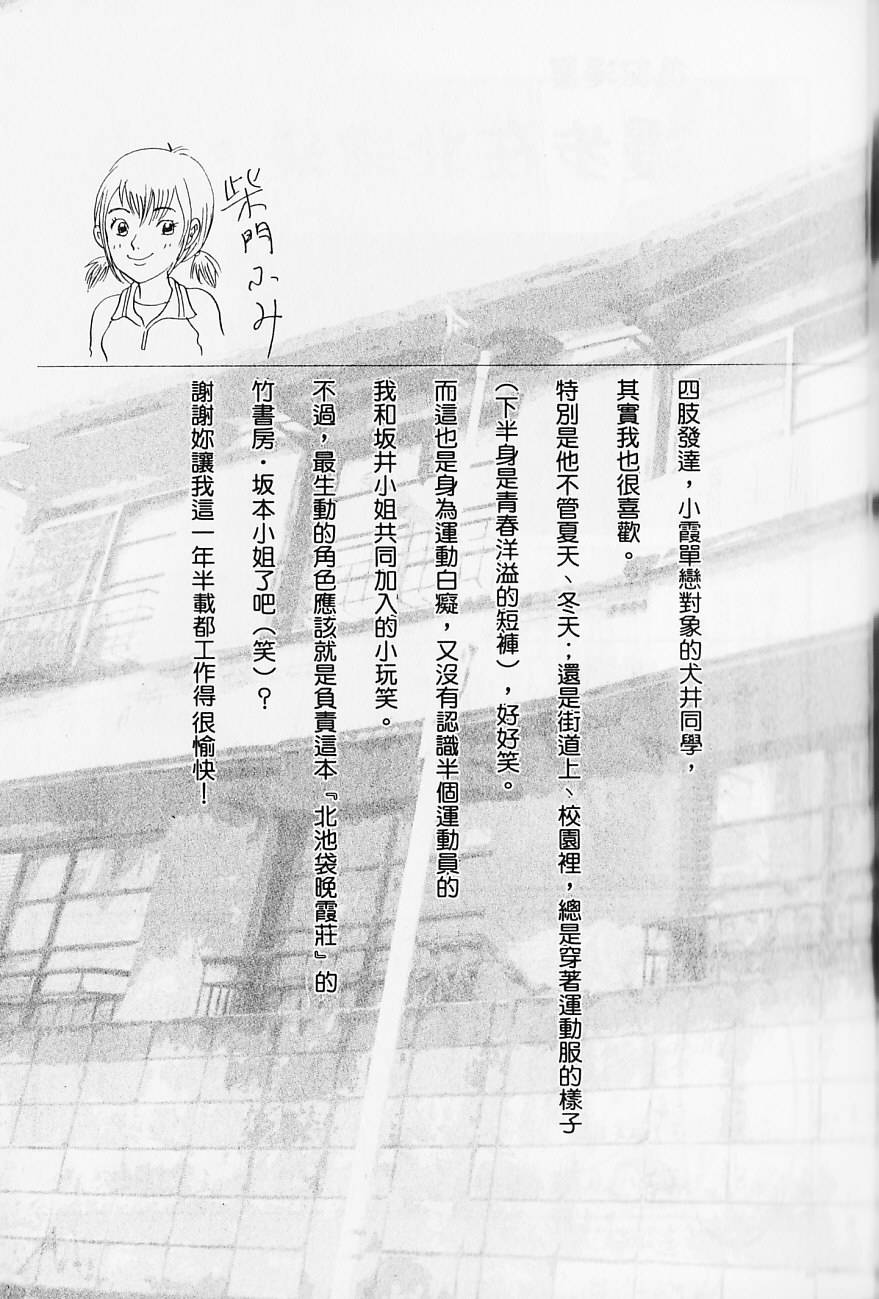 四肢發達，小霞單戀對象的犬井同學，
其實我也很喜歡。
特別是他不管夏天、冬天；還是街道上、校園裡，總是穿著運動服的樣子
（下半身是青春洋溢的短褲），好好笑。
而這也是身為運動白癡，又沒有認識半個運動員的
我和坂井小姐共同加入的小玩笑。
不過，最生動的角色應該就是負責這本『北池袋晚霞莊』的
竹書房．坂本小姐了吧（笑）？
謝謝妳讓我這一年半載都工作得很愉快！
柴門ふみ